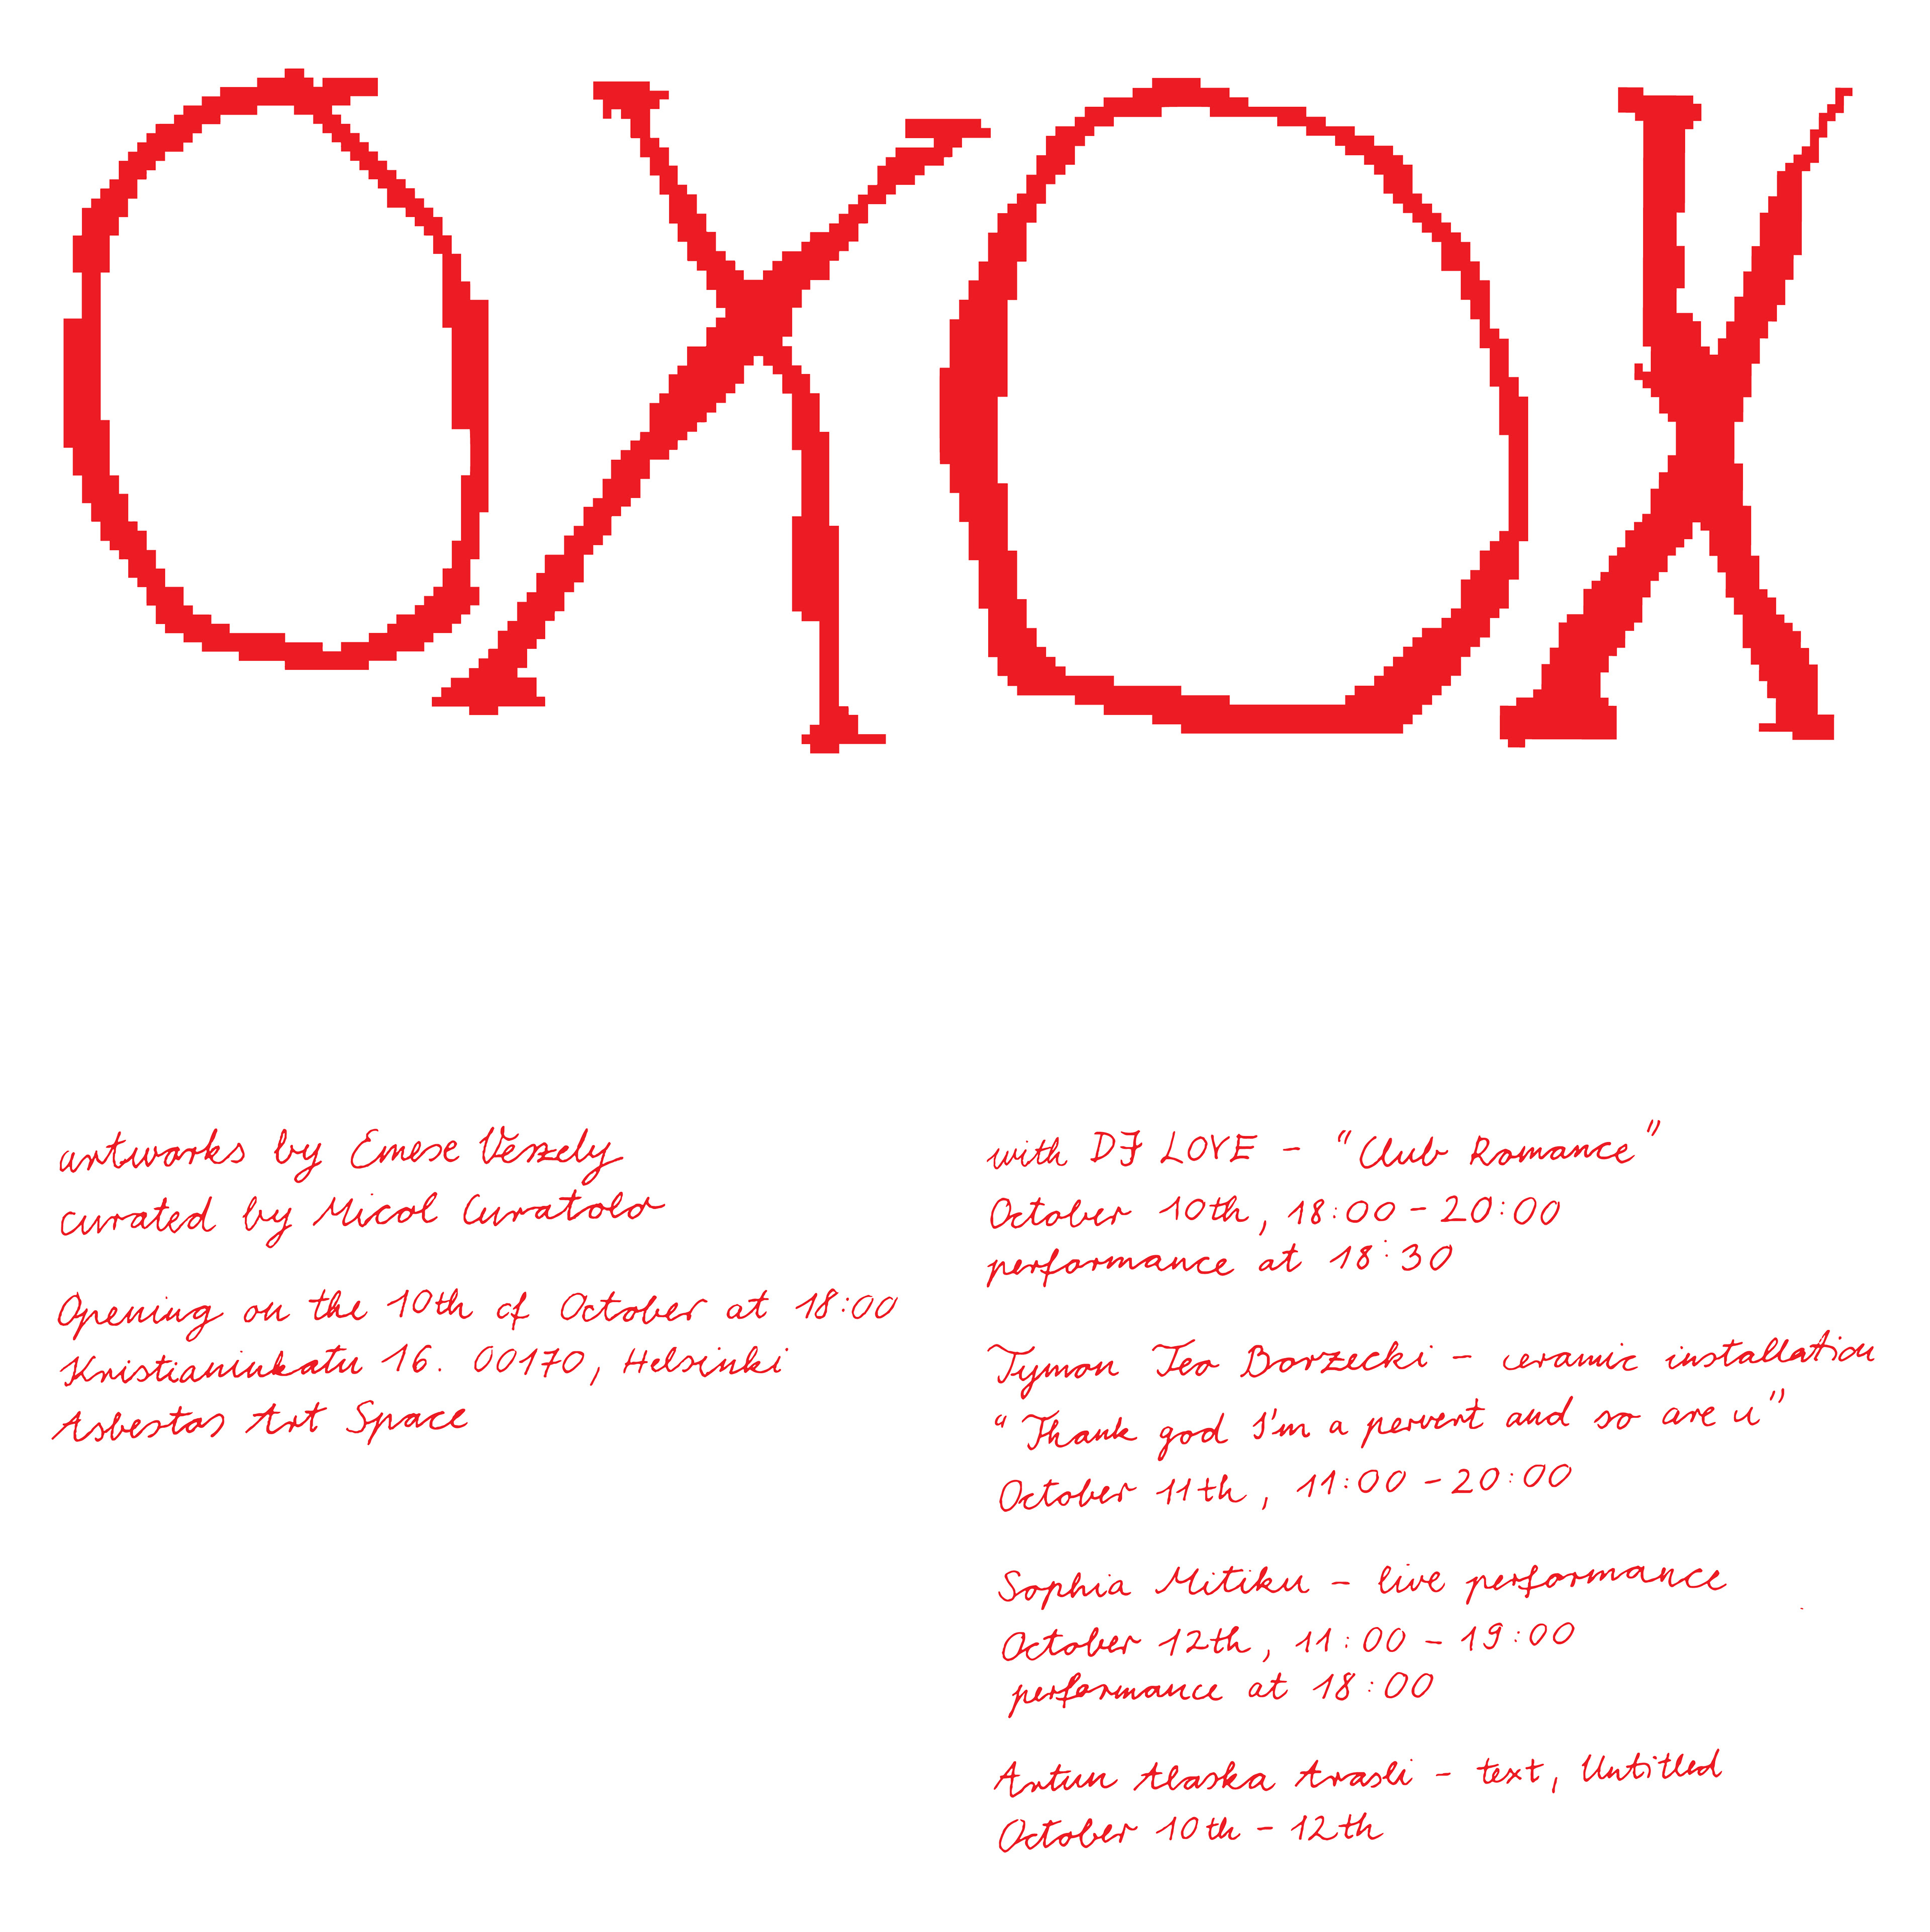 OXOX
artworks by Emese Veszely
curated by Micol Curatolo
Opening on the 10th of October at 18:00
Kristianinkatu 16. 00170, Helsinki
Asbestos Art Space
with DJ LOVE - "Club Romance"
October 10th, 18:00 - 20:00
performance at 18:30
Tymon Teo Borzecki - ceramic installation
"Thank god I'm a pervert and so are u"
October 11th, 11:00 - 20:00
Sophia Mitiku - live performance
October 12th, 11:00 - 19:00
performance at 18:00
Artun Alaska Arasli - text, Untitled
October 10th - 12th